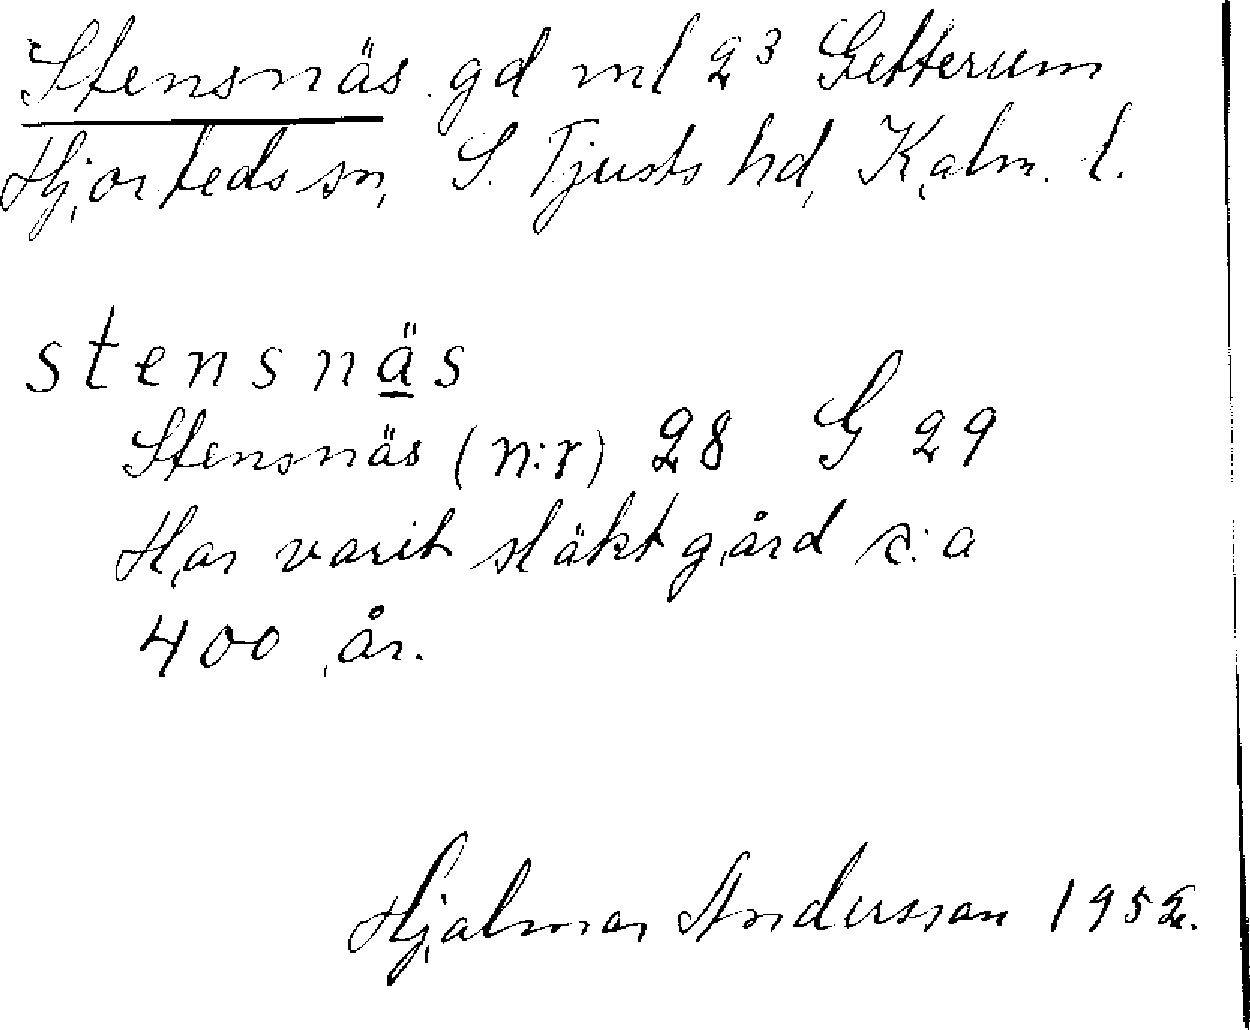 Stensnäs gd ml 2³ Getterum
Hjorteds sn, S. Tjusts hd, Kalm. l.
stensnäs
Stensnäs (n:r) 28 G 29
Har varit släktgård c:a
400 år.
Hjalmar Andersson 1952.